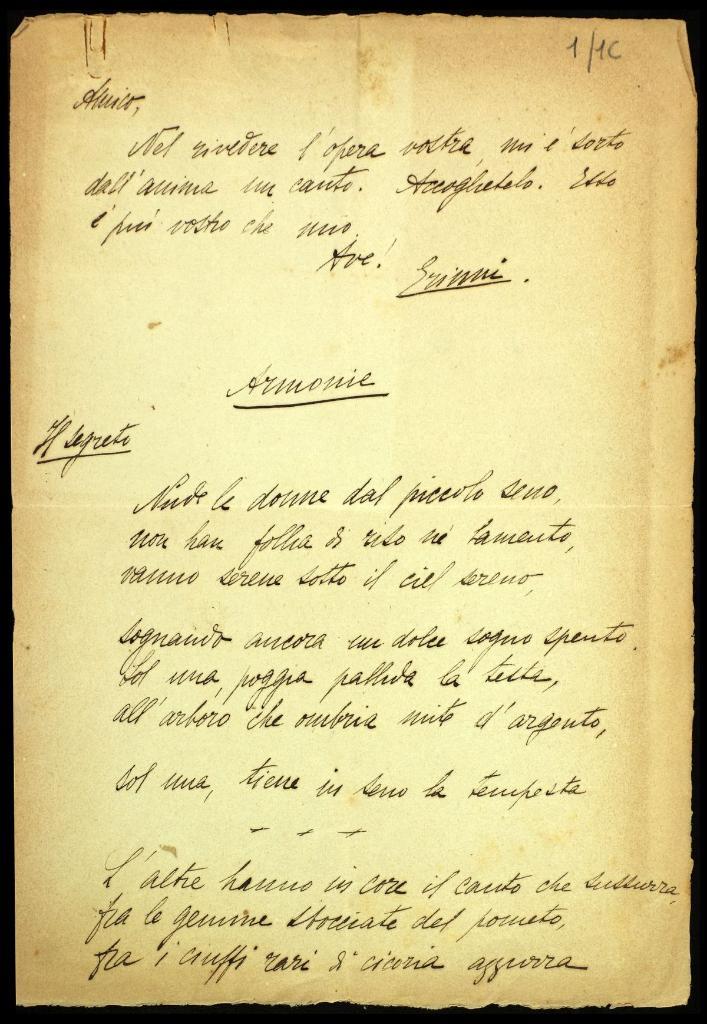 1/1C
Amico,
Nel rivedere l'opera vostra, mi è sorto
dall'anima un canto. Accoglietelo. Esso
è più vostro che mio.
Ave!
Erinni.
Armonie
Il segreto
Nude le donne dal piccolo seno,
non han follia di riso nè lamento,
vanno serene sotto il ciel sereno,
sognando ancora un dolce sogno spento.
Sol una, poggia pallida la testa,
all'arboro che ombria mite d'argento,
sol una, tiene in seno la tempesta
- - -
L'altre hanno in core il canto che sussurra,
fra le gemme sbocciate del pometo,
fra i ciuffi rari di cicoria azzurra